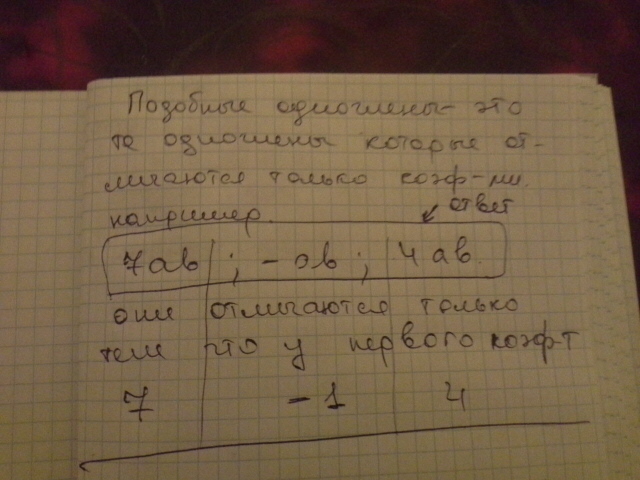 Подобные одночлены- это
те одночлены которые от-
личаются только коэф-ми.
например.
ответ
7ав ; -ав ; 4ав.
они отличаются только
тем что у первого коэф-т
7 -1 4